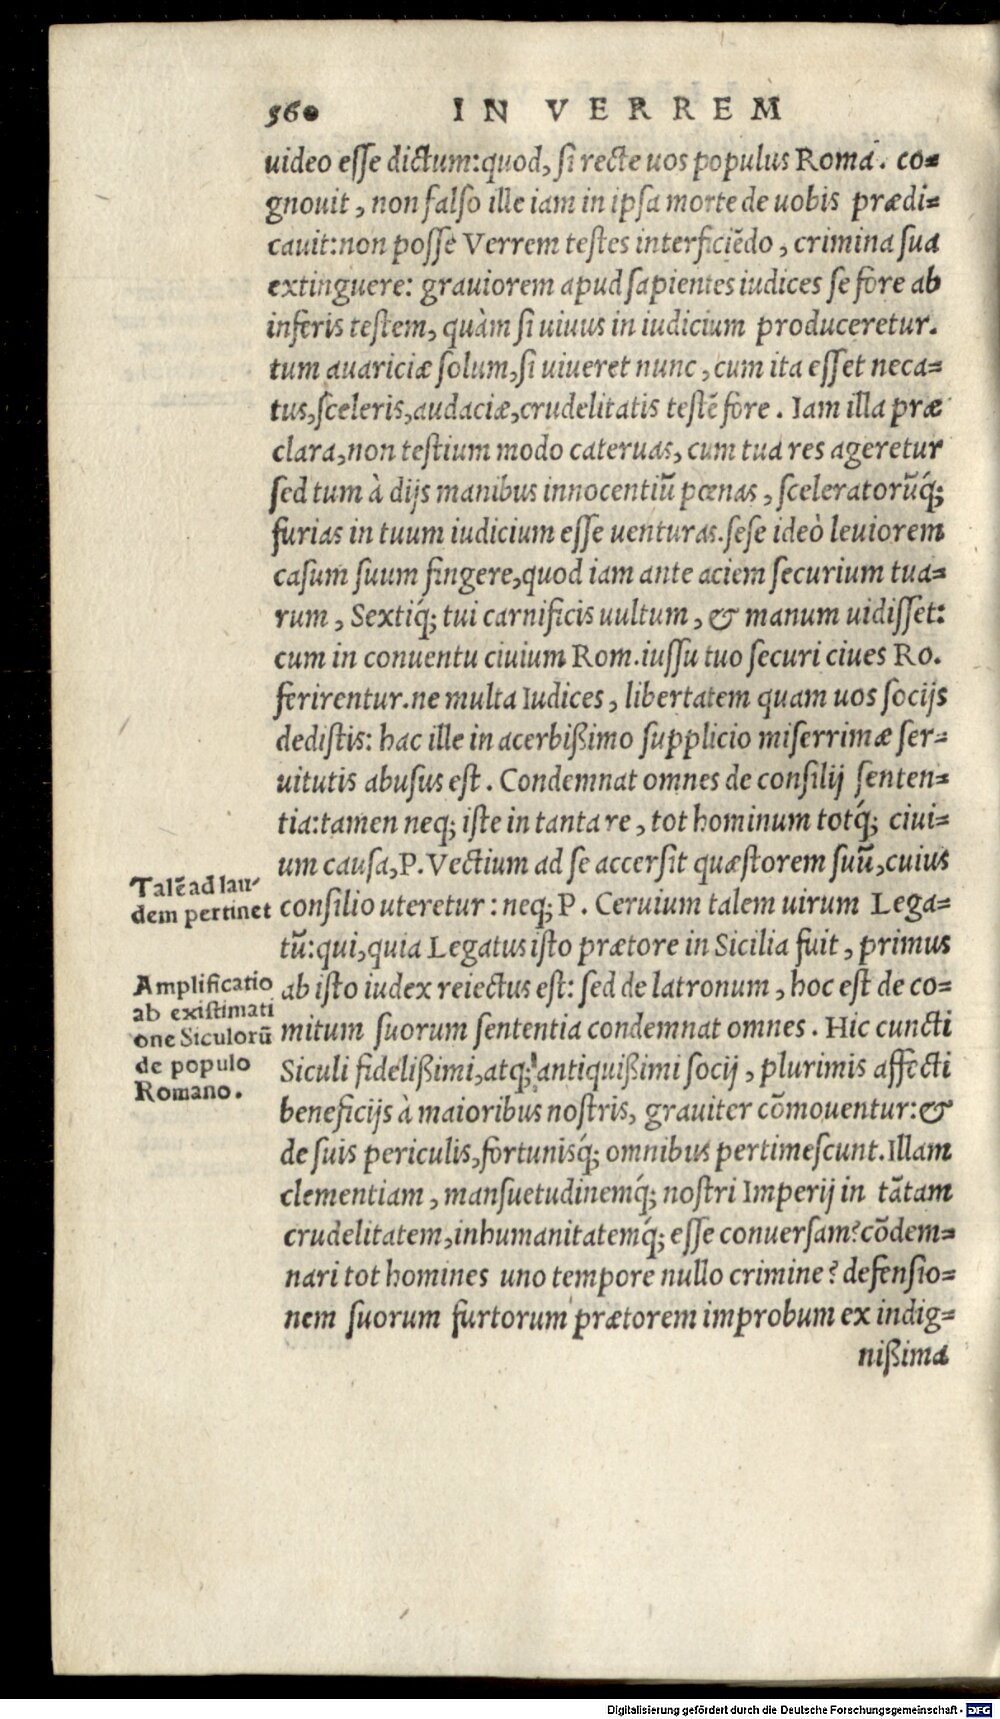 560 IN VERREM
uideo esse dictum:quod, si recte uos populus Roma. co=
gnouit, non falso ille iam in ipsa morte de uobis prædi=
cauit:non posse Verrem testes interficiẽdo, crimina sua
extinguere: grauiorem apud sapientes iudices se fore ab
inferis testem, quàm si uiuus in iudicium produceretur.
tum auariciæ solum, si uiueret nunc, cum ita esset neca=
tus, sceleris, audaciæ, crudelitatis testẽ fore. Iam illa præ
clara, non testium modo cateruas, cum tua res ageretur
sed tum à dijs manibus innocentiũ pœnas, sceleratorũq́;
furias in tuum iudicium esse uenturas. sese ideò leuiorem
casum suum fingere, quod iam ante aciem securium tua=
rum, Sextiq́; tui carnificis uultum, & manum uidisset:
cum in conuentu ciuium Rom. iussu tuo securi ciues Ro.
ferirentur. ne multa Iudices, libertatem quam uos socijs
dedistis: hac ille in acerbißimo supplicio miserrimæ ser=
uitutis abusus est. Condemnat omnes de consilij senten=
tia:tamen neq; iste in tanta re, tot hominum totq́; ciui=
um causa, P. Vectium ad se accersit quæstorem suũ, cuius
Talẽ ad lau
dem pertinet
consilio uteretur: neq; P. Ceruium talem uirum Lega=
tũ: qui, quia Legatus isto prætore in Sicilia fuit, primus
Amplificatio
ab existimati
one Siculorũ
de populo
Romano.
ab isto iudex reiectus est: sed de latronum, hoc est de co=
mitum suorum sententia condemnat omnes. Hic cuncti
Siculi fidelißimi, atq; antiquißimi socij, plurimis affecti
beneficijs à maioribus nostris, grauiter cõmouentur: &
de suis periculis, fortunisq́; omnibus pertimescunt. Illam
clementiam, mansuetudinemq́; nostri Imperij in tãtam
crudelitatem, inhumanitatemq́; esse conuersam? cõdem=
nari tot homines uno tempore nullo crimine? defensio=
nem suorum furtorum prætorem improbum ex indig=
nißima
Digitalisierung gefördert durch die Deutsche Forschungsgemeinschaft - DFG